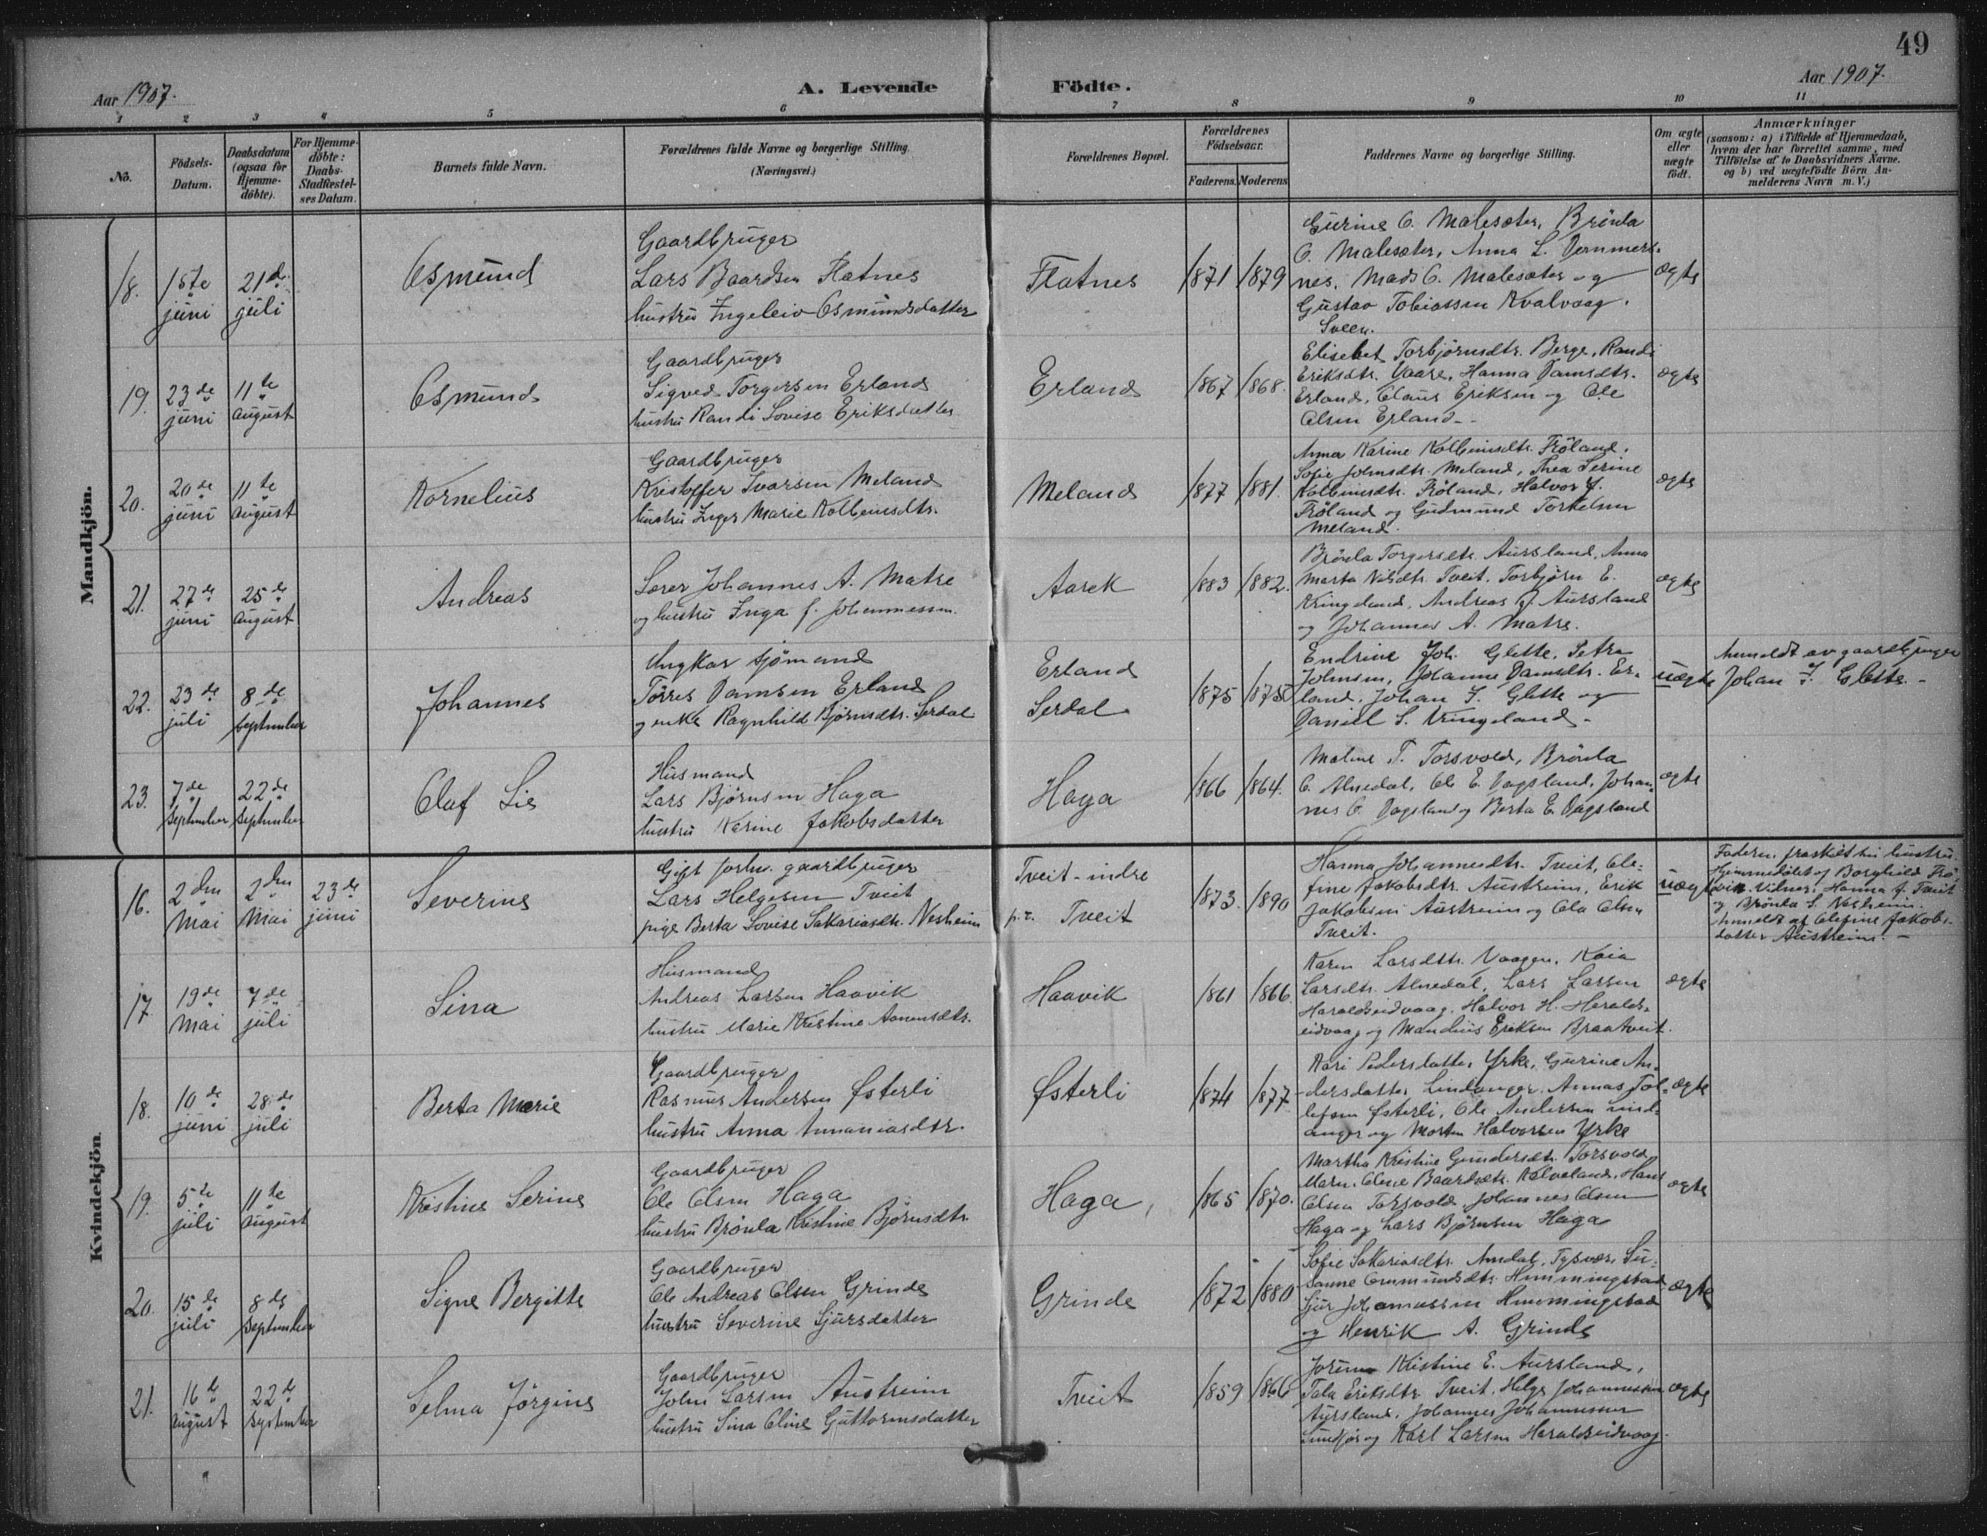 49
Aar 1907.
A. Levende
Födte.
Aar 1907.
1 2 3 4 5 6 7 8 9 10 11
No.
Födsels-
Datum.
Daabsdatum
(ogsaa for
Hjemme-
döbte).
For Hjemme-
döbte:
Daabs-
Stadfæstel-
ses Datum.
Barnets fulde Navn.
Forældrenes fulde Navne og borgerlige Stilling
(Næringsvei.)
Forældrenes Bopæl.
Forældrenes
Födselsaar.
Faderens. Moderens
Faddernes Navne og borgerlige Stilling.
Om ægte
eller
uægte
födt.
Anmærkninger
(saasom: a) i Tilfælde af Hjemmedaab,
hvem der har forrettet samme, med
Tilföielse af to Daabsvidners Navne.
og b) ved uægtefödte Börn An-
melderens Navn m. V.)
Mandkjön.
18.
15te
juni
21de
juli
Osmund
Gaardbruger
Lars Baardsen Flatnes
hustru Ingeleiv Osmundsdatter
Flatnes
1871
1879
Gurine O. Malesæter, Brönla
O. Malesæter, Anna L. Vommers-
nes, Mads O. Malesæter og
Gustav Tobiassen Kvalvaag.
Sveen.
ægte
19.
23de
juni
11te
august
Osmund
Gaardbruger
Sigved Torgersen Erland
hustru Randi Lovise Eriksdatter
Erland
1867
1868.
Elisebet Torbjörnsdtr. Berge, Randi
Eriksdtr. Vaare, Hanna Damsdtr.
Erland, Claus Eriksen og Ole
Olsen Erland.
ægte
20.
20de
juni
11te
august
Kornelius
Gaardbruger
Kristoffer Ivarsen Meland
hustru Inger Marie Kolbeinsdtr.
Meland
1877
1881.
Anna Karine Kolbeinsdtr. Fröland,
Sofie Johnsdtr. Meland, Thea Serine
Kolbeinsdtr. Fröland, Halvor J.
Fröland og Gudmund Torkelsen
Meland.
ægte
21.
27de
juni
25de
august
Andreas
Lærer Johannes A. Matre
og hustru Inga f. Johannessen.
Aarek
1883
1882.
Brönla Torgersdtr. Aursland, Anna
Marta Nilsdtr. Tveit, Torbjörn E.
Kringeland, Andreas J. Aursland
og Johannes A. Matre.
ægte
22.
23de
juli
8de
september
Johannes
Ungkar sjömand
Törres Damsen Erland
og enke Ragnhild Björnsdtr. Serdal
Erland
Serdal
1875
1875
Endrine Joh. Glette, Petra
Johnsen, Johanne Damsdtr. Er-
land, Johan I. Glette og
Daniel S. Kringeland.
uægte
Anmeldt av gaardbruger
Johan I. Glette.
23.
7de
september
22de
september
Olaf Lie
Husmand
Lars Björnsen Haga
hustru Karine Jakobsdatter
Haga
1866
1864.
Maline T. Torsvold, Brönla
O. Alnedal, Ole E. Vagsland, Johan-
nes O. Vagsland og Berta E. Vagsland
ægte
Kvindekjön.
16.
2den
Mai
2den
Mai
23de
juni
Severine
Gift forhv. gaardbruger
Lars Helgesen Tveit
pige Berta Lovise Sakariasdtr. Nesheim
Tveit-indre
p.t. Tveit
1873.
1890
Hanna Johannesdtr. Tveit, Ole-
fine Jakobsdtr. Austreim, Erik
Jakobsen Austreim og Ola Olsen
Tveit.
uægte
Fadern fraskilt sin hustru.
Hjemmedöbt af Borghild Frö-
vik. Vidner: Hanna J. Tveit
og Brönla S. Nesheim.
Anmeldt af Olefine Jakobs-
datter Austreim.
17.
19de
Mai
7de
juli
Sina
Husmand
Andreas Larsen Haavik
hustru Marie Kristine Aanensdtr.
Haavik
1861
1866.
Karen Larsdtr. Vaagen, Kaia
Larsdtr. Alnedal, Lars Larsen
Haraldseidvaag, Halvor H. Haralds-
eidvaag og Mandius Eriksen Braatveit.
ægte
18.
10de
juni
28de
juli
Berta Marie
Gaardbruger
Rasmus Andersen Østerli
hustru Anna Ananiasdtr.
Østerli
1874
1877
Kari Pedersdatter Yrke, Gurine An-
dersdatter Lindanger, Annas Tol-
lefsen Østerli, Ole Andersen Lind-
anger og Morten Halvorsen Yrke
ægte
19.
5te
juli
11te
august
Kristine Serine
Gaardbruger
Ole Olsen Haga
hustru Brönla Kristine Björnsdtr.
Haga,
1865
1870.
Martha Kristine Gundersdtr. Torsvold
Maren Oline Baardsdtr. Kalveland, Hans
Olsen Torsvold, Johannes Olsen
Haga og Lars Björnsen Haga
ægte
20.
15de
juli
8de
september
Signe Bergitte
Gaardbruger
Ole Andreas Olsen Grinde
hustru Severine Sjursdatter
Grinde
1872
1880
Sofie Sakariasdtr. Amdal, Tysvær, Su-
sanne Ommundsdtr. Hemmingstad
Sjur Johannessen Hemmingstad
og Henrik A. Grinde
ægte
21.
16de
august
22de
september
Selma Jörgine
Gaardbruger
John Larsen Austreim
hustru Sina Oline Guttormsdatter
Tveit
1859
1866
Jorunn Kristine E. Aursland,
Tala Eriksdtr. Tveit, Helge Johannessen
Aursland, Johannes Johannessen
Sundför og Karl Larsen Haraldseidvaag.
ægte